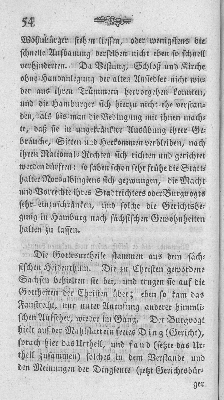 54
Wohnbürger stehen liessen, oder wenigstens die
schnelle Ausbauung derselben nicht eben so schnell
verhinderten. Da Vestung, Schloß und Kirche
ohne Handanlegung der alten Ansiedler nicht wie-
der aus ihren Trümmern hervorgehen konnten,
und die Hamburger sich hiezu nicht ehe verstan-
den, als bis man die Bedingung mit ihnen mach-
te, daß sie in ungekränkter Ausübung ihrer Ge-
bräuche, Sitten und Herkommen verbleiben, nach
ihren National-Rechten sich richten und gerichtet
werden dürften: so sahen schon sehr frühe die Statt-
halter Nordalbingiens sich gezwungen, die Macht
und Vorrechte ihres Stadtrichters oder Burgvogts
sehr einzuschränken, und solche die Gerichtshe-
gung in Hamburg nach sächsischen Gewohnheiten
halten zu lassen.
Die Gottesurtheile stammen aus dem säch-
sischen Heidenthum. Die zu Christen gewordene
Sachsen behielten sie bey, und trugen sie auf die
Gottheiten der Christen über; eben so kam das
Faustrecht, nur unter anderer Leitung anderer
himmlischen Aufseher, wieder im Gang. Der Burgvogt
hielt auf der Mahlstatt sein freies Ding (Gericht),
sprach hier das Urtheil, und fand (setzte das
Urtheil zusammen) solches in dem Verstande und
den Meinungen der Dingleute (jetzt Gerichtsbür-
ger